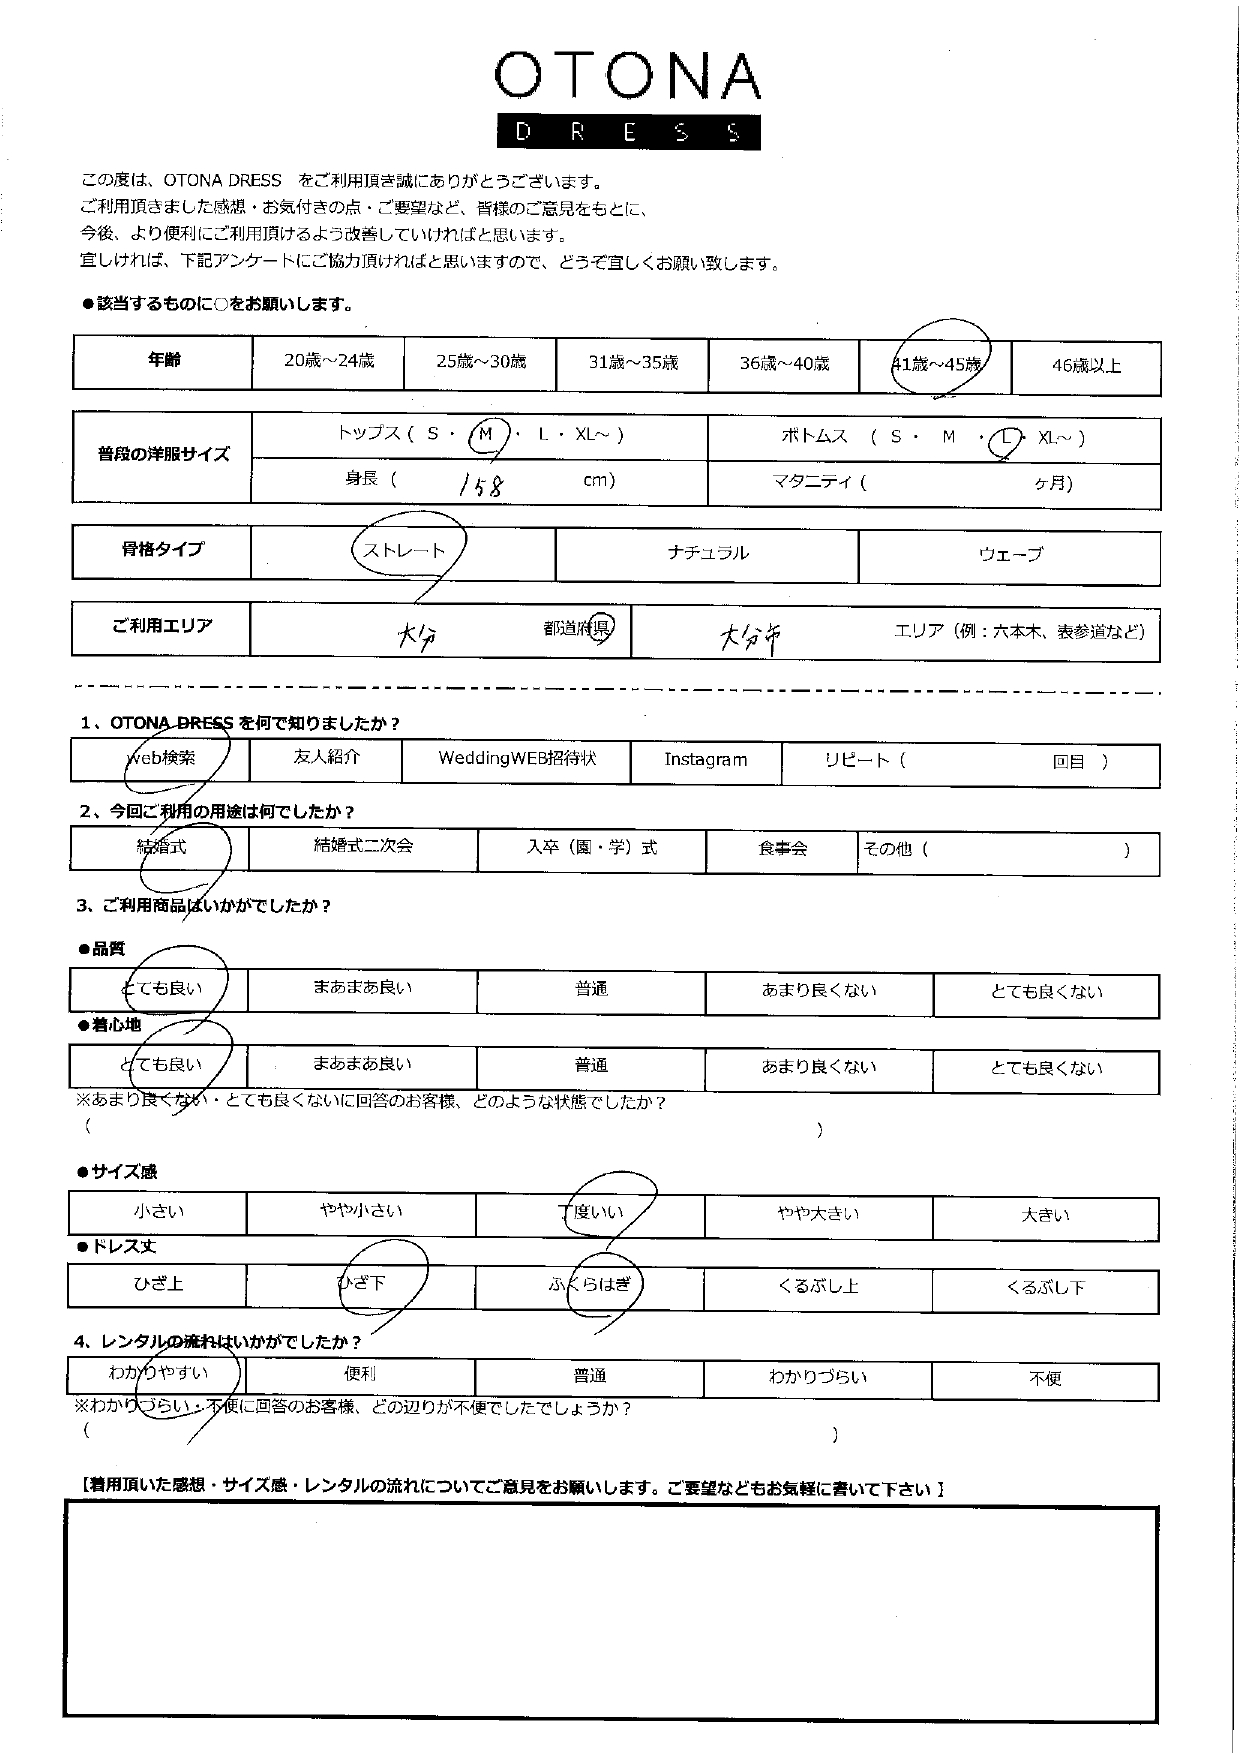 OTONA
DRESS
この度は、OTONA DRESS をご利用頂き誠にありがとうございます。
ご利用頂きました感想・お気付きの点・ご要望など、皆様のご意見をもとに、
今後、より便利にご利用頂けるよう改善していければと思います。
宜しければ、下記アンケートにご協力頂ければと思いますので、どうぞ宜しくお願い致します。
●該当するものに○をお願いします。
年齢 20歳～24歳 25歳～30歳 31歳～35歳 36歳～40歳 41歳～45歳 46歳以上
普段の洋服サイズ トップス ( S ・ M ・ L ・ XL～ ) ボトムス ( S ・ M ・ L ・ XL～ )
身長 ( 158 cm) マタニティ ( ヶ月)
骨格タイプ ストレート ナチュラル ウェーブ
ご利用エリア 大分 都道府県 大分市 エリア（例：六本木、表参道など）
1、OTONA DRESS を何で知りましたか？
web検索 友人紹介 WeddingWEB招待状 Instagram リピート ( 回目 )
2、今回ご利用の用途は何でしたか？
結婚式 結婚式二次会 入卒（園・学）式 食事会 その他 ( )
3、ご利用商品はいかがでしたか？
●品質
とても良い まあまあ良い 普通 あまり良くない とても良くない
●着心地
とても良い まあまあ良い 普通 あまり良くない とても良くない
※あまり良くない・とても良くないに回答のお客様、どのような状態でしたか？
( )
●サイズ感
小さい やや小さい 丁度いい やや大きい 大きい
●ドレス丈
ひざ上 ひざ下 ふくらはぎ くるぶし上 くるぶし下
4、レンタルの流れはいかがでしたか？
わかりやすい 便利 普通 わかりづらい 不便
※わかりづらい・不便に回答のお客様、どの辺りが不便でしたでしょうか？
( )
【着用頂いた感想・サイズ感・レンタルの流れについてご意見をお願いします。ご要望などもお気軽に書いて下さい 】